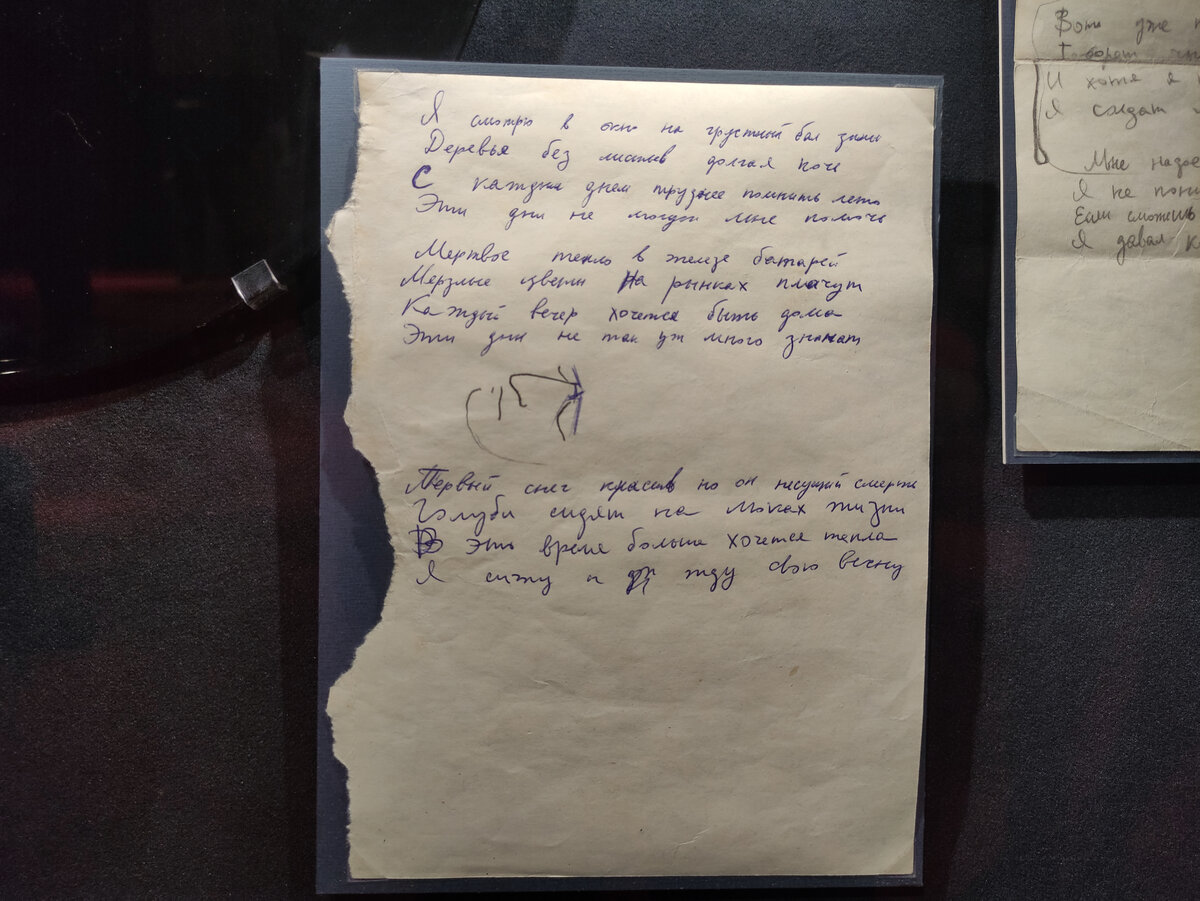 Я смотрю в окно на грустный бал зимы
Деревья без листьев долгая ноче
С каждым днем труднее помнить лето
Эти дни не могли мне помочь
Мертвое тепло в железе батарей
Мерзлые цветы На рынках плачут
Каждый вечер хочется быть дома
Эти дни не так уж много значат
Первый снег красив но он несущий смерть
Голуби сидят на люках жизни
В это время больше хочется тепла
Я сижу и жду свою весну
Вот уже
И хотя я
Я солдат
Мне надое
Я не пони
Если сможешь
Я давал к